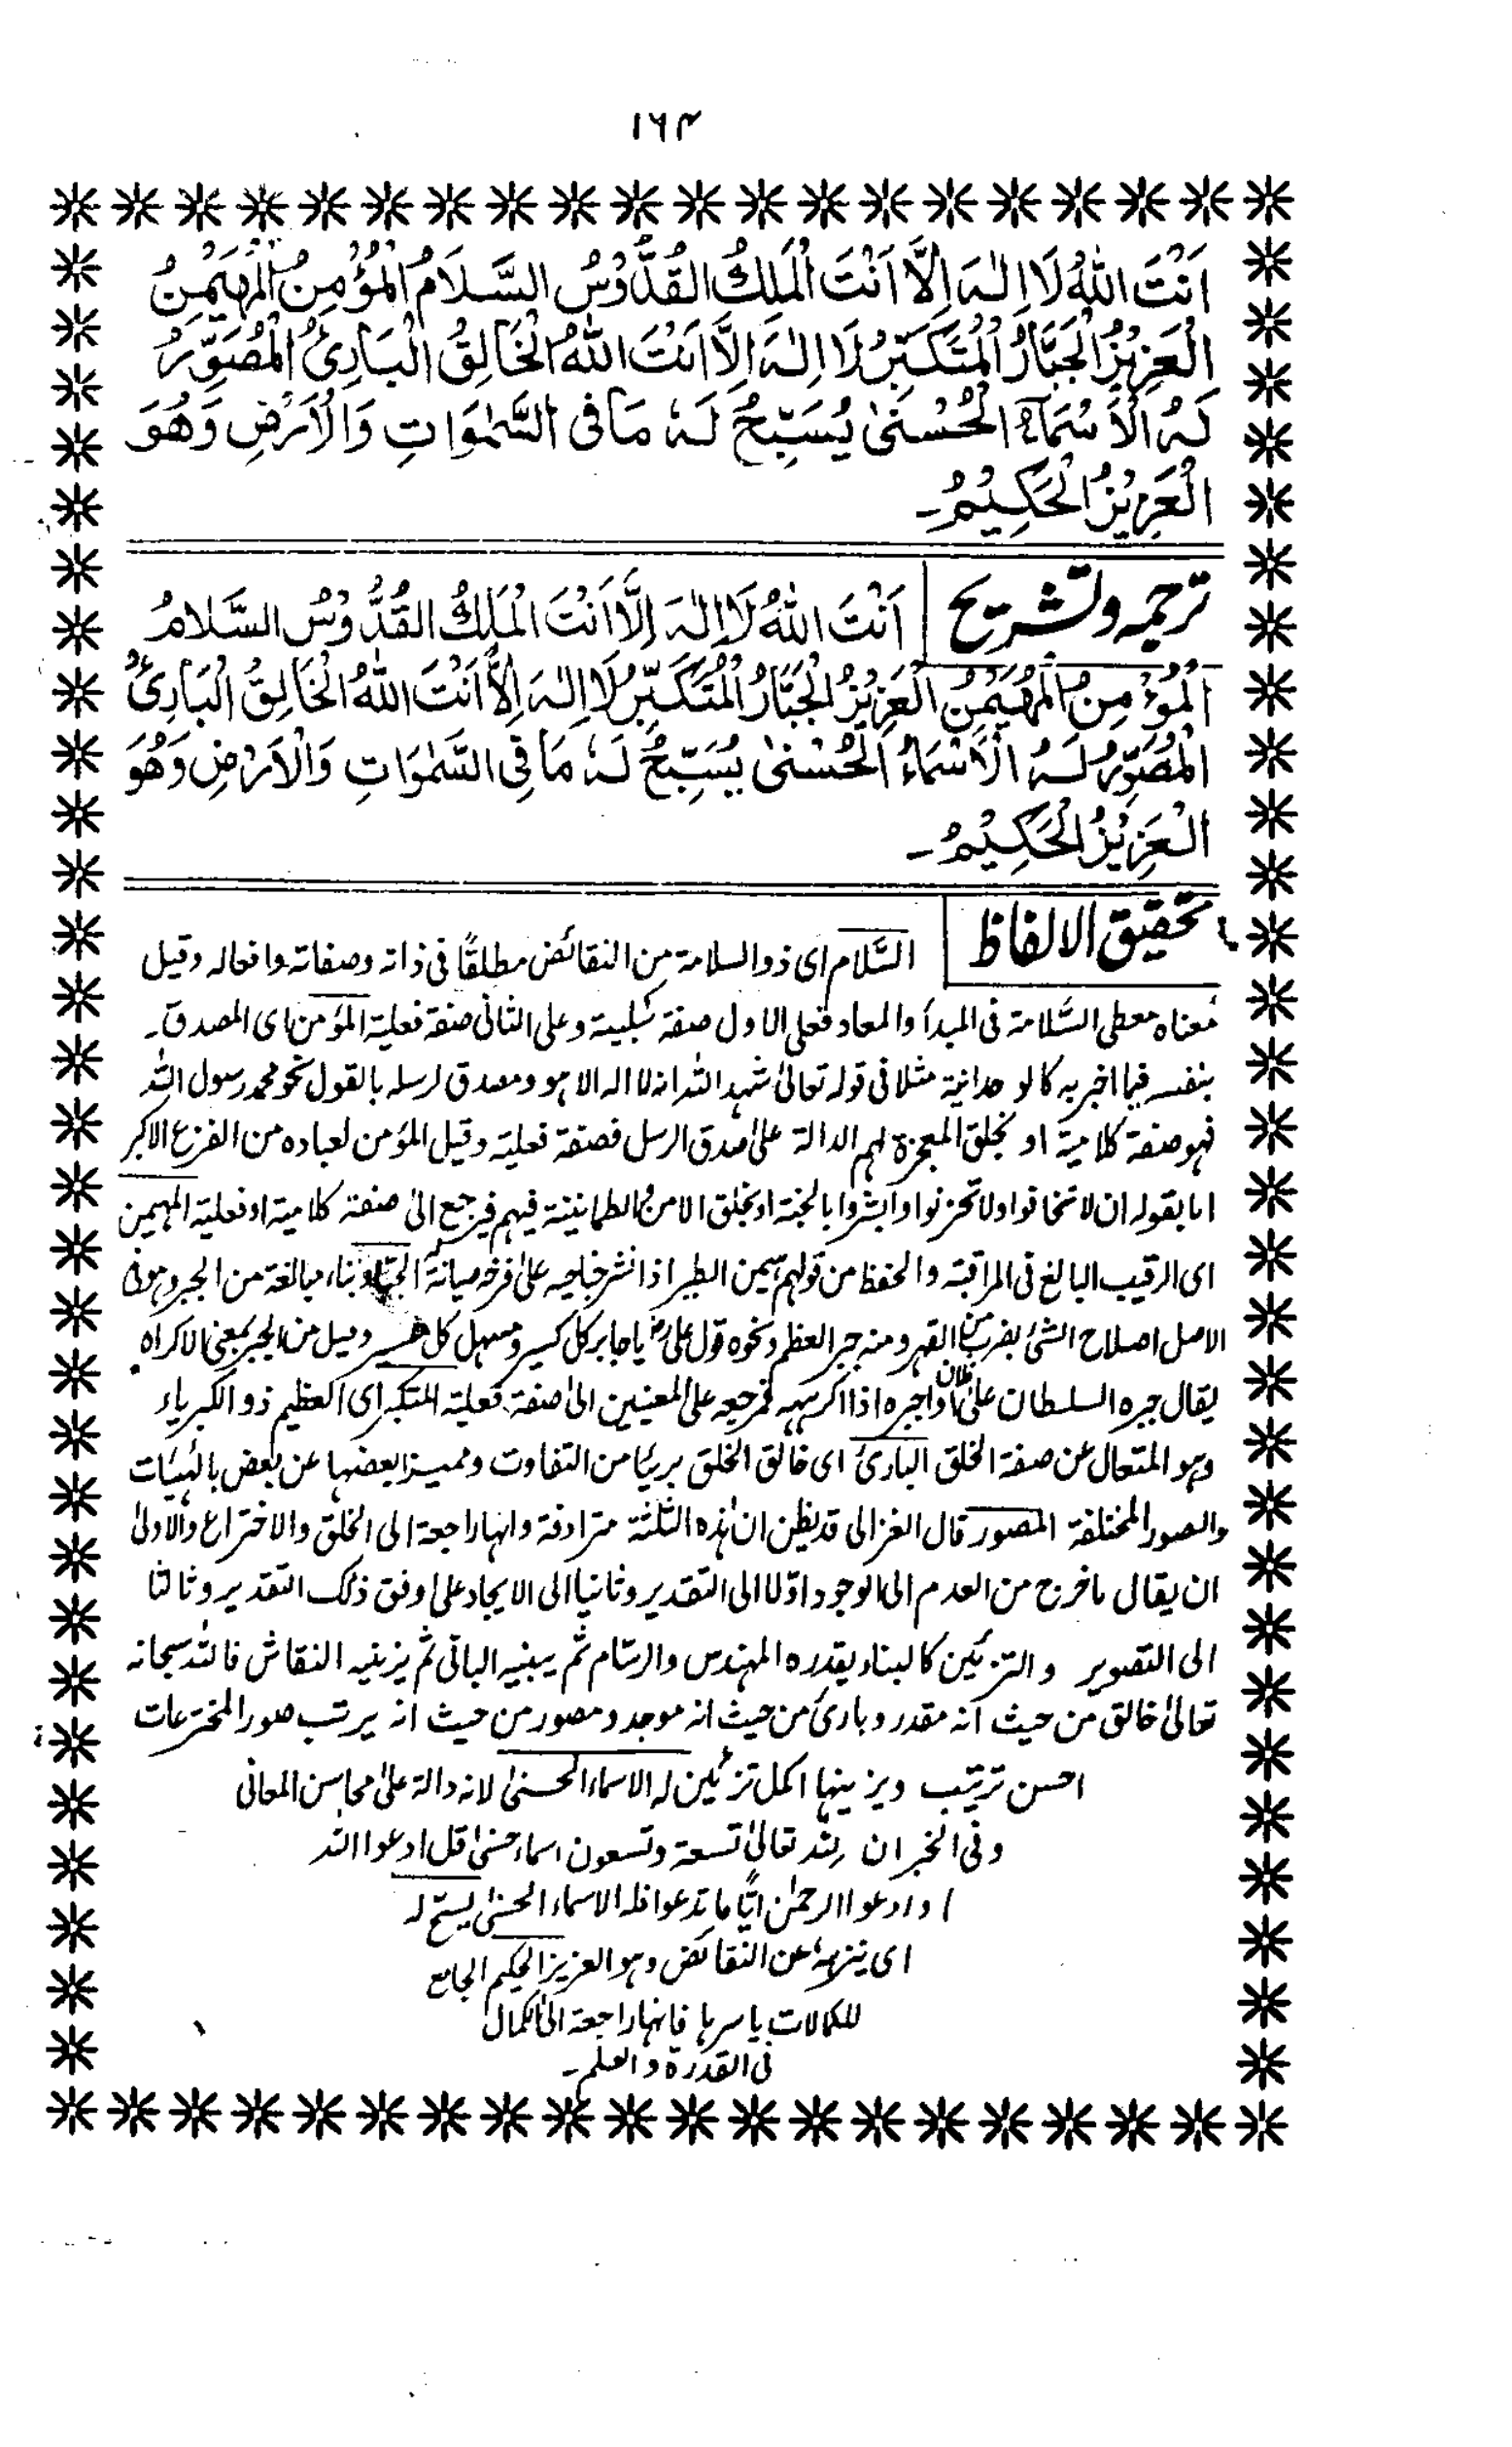 ۱۶۴
اَنْتَ اللّٰهُ لَا اِلٰهَ اِلَّا اَنْتَ الْمَلِكُ الْقُدُّوْسُ السَّلَامُ الْمُؤْمِنُ الْمُهَيْمِنُ
الْعَزِيْزُ الْجَبَّارُ الْمُتَكَبِّرُ لَا اِلٰهَ اِلَّا اَنْتَ اللّٰهُ الْخَالِقُ الْبَارِئُ الْمُصَوِّرُ
لَهُ الْاَسْمَآءُ الْحُسْنٰى يُسَبِّحُ لَهٗ مَا فِى السَّمٰوَاتِ وَالْاَرْضِ وَهُوَ
الْعَزِيْزُ الْحَكِيْمُ۔
ترجمہ و تشریح
اَنْتَ اللّٰهُ لَا اِلٰهَ اِلَّا اَنْتَ الْمَلِكُ الْقُدُّوْسُ السَّلَامُ
اَلْمُؤْمِنُ الْمُهَيْمِنُ الْعَزِيْزُ الْجَبَّارُ الْمُتَكَبِّرُ لَا اِلٰهَ اِلَّا اَنْتَ اللّٰهُ الْخَالِقُ الْبَارِئُ
الْمُصَوِّرُ لَهُ الْاَسْمَاءُ الْحُسْنٰى يُسَبِّحُ لَهٗ مَا فِى السَّمٰوَاتِ وَالْاَرْضِ وَهُوَ
الْعَزِيْزُ الْحَكِيْمُ۔
تحقیق الالفاظ
السَّلام ای ذو السلامۃ من النقائض مطلقًا فی ذاتہ وصفاتہ وافعالہ وقیل
معناہ معطی السَّلامۃ فی المبدأ والمعاد فعلی الاول صفۃ سلبیۃ وعلی الثانی صفۃ فعلیۃ المؤمن ای المصدق۔
بنفسہ فیما اخبر بہ کالوحدانیۃ مثلا فی قولہ تعالیٰ شہد اللہ انہ لا الہ الا ہو ومصدق لرسلہ بالقول نحو محمد رسول اللہ
فہو صفۃ کلامیۃ او بخلق المعجزۃ لہم الدالۃ علیٰ صدق الرسل فصفۃ فعلیۃ وقیل المؤمن لعبادہ من الفزع الاکبر
اما بقولہ ان لا تخافوا ولا تحزنوا وابشروا بالجنۃ او بخلق الامن والطمانینۃ فیہم فیرجع الیٰ صفۃ کلامیۃ او فعلیۃ المہیمن
ای الرقیب البالغ فی المراقبۃ والحفظ من قولہم ہیمن الطیر اذا نشر جناحیہ علیٰ فرخہ صیانۃ الجبار بناء مبالغۃ من الجبر وہو فی
الاصل اصلاح الشئ بضرب من القہر ومنہ جبر العظم ونحوہ قول علیؓ یا جابر کل کسیر ومسہل کل عسیر وقیل من الجبر بمعنی الاکراہ
یقال جبرہ السلطان علیٰ کذا واجبرہ اذا اکرہہ فمرجعہ علی المعنیین الیٰ صفۃ فعلیۃ المتکبر ای العظیم ذو الکبریاء
وہو المتعال عن صفۃ الخلق الباریٔ ای خالق الخلق بریئا من التفاوت وممیزا بعضہا عن بعض بالہیئات
والصور المختلفۃ المصور قال الغزالی قد یظن ان ہٰذہ الثلثۃ مترادفۃ وانہا راجعۃ الی الخلق والاختراع والاولیٰ
ان یقال ما خرج من العدم الی الوجود اوّلا الی التقدیر وثانیا الی الایجاد علی وفق ذلک التقدیر وثالثا
الی التصویر والتزئین کالبناء یقدرہ المہندس والرسّام ثم یبنیہ البانی ثم یزینہ النقاش فاللہ سبحانہ
تعالیٰ خالق من حیث انہ مقدر وباریٔ من حیث انہ موجد ومصور من حیث انہ یرتب صور المخترعات
احسن ترتیب ویزینہا اکمل تزئین لہ الاسماء الحسنیٰ لانہ دالۃ علیٰ محاسن المعانی
وفی الخبر ان للہ تعالیٰ تسعۃ وتسعون اسماء حسنیٰ قل ادعوا اللہ
او ادعوا الرحمٰن ایًّا ما تدعوا فلہ الاسماء الحسنیٰ یسبح لہ
ای ینزہہ عن النقائض وہو العزیز الحکیم الجامع
للکمالات باسرہا فانہا راجعۃ الی الکمال
فی القدرۃ والعلم۔